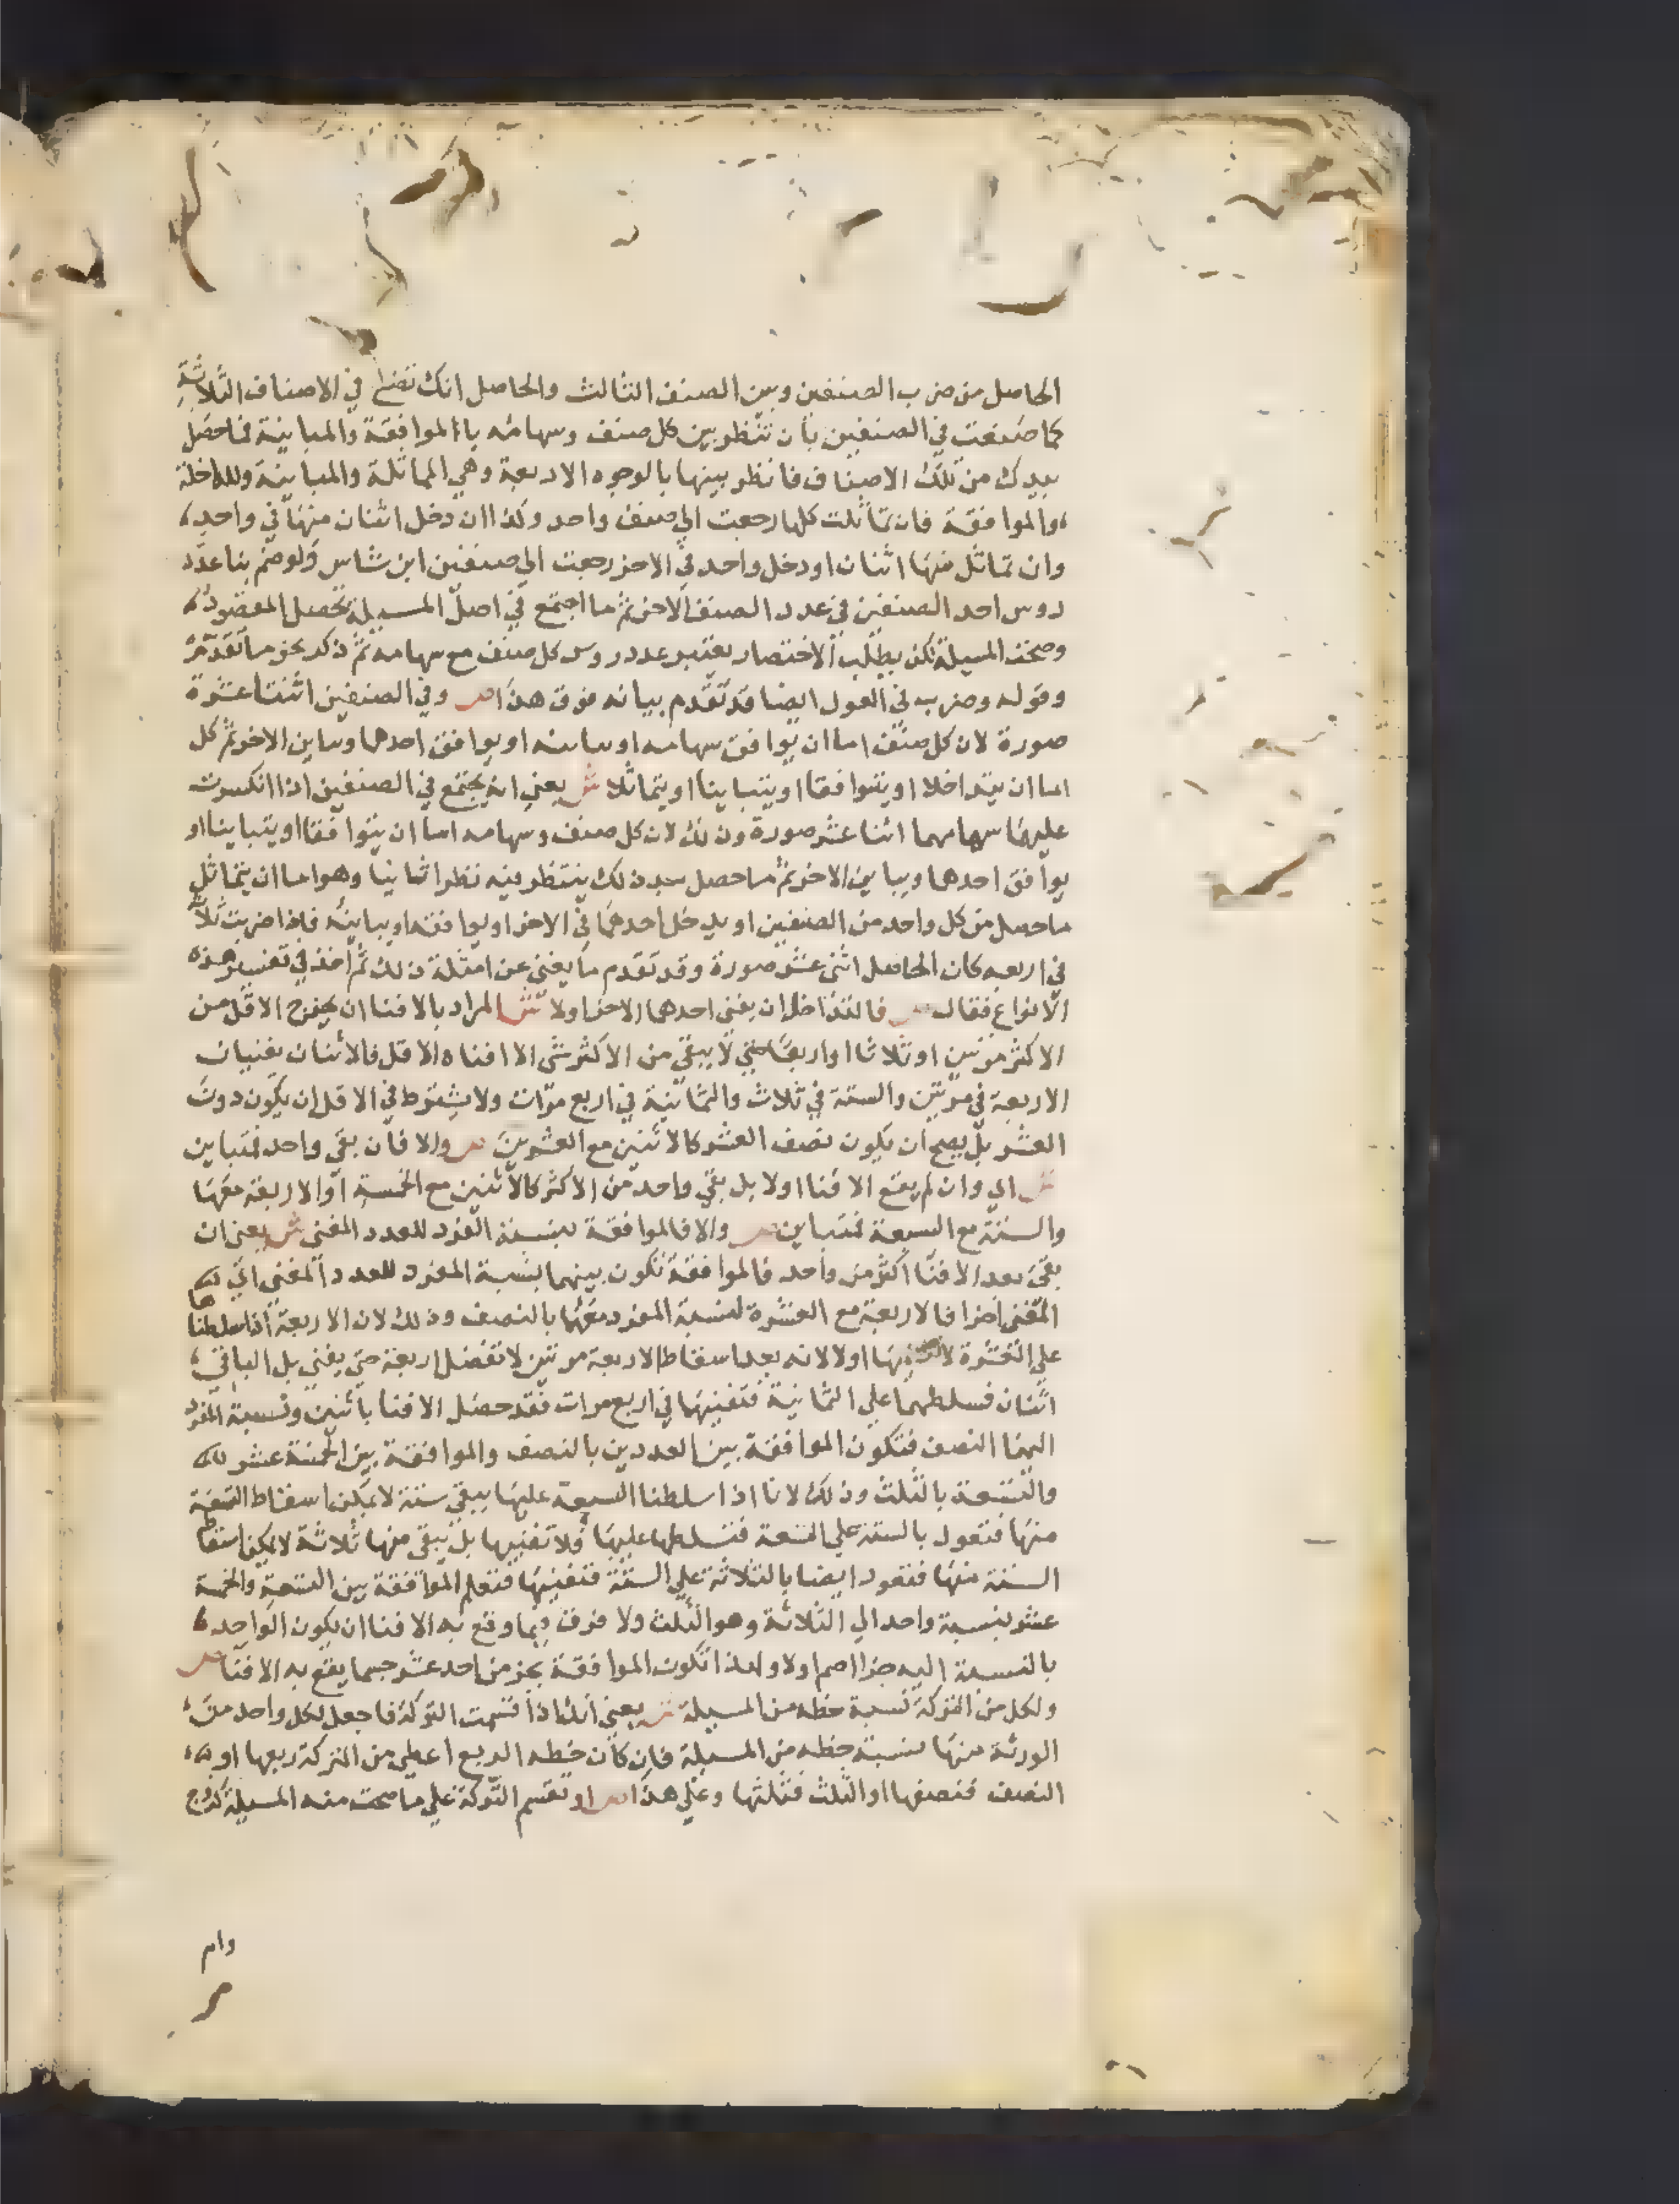 الحاصل من ضرب الصنفين وبين الصنف الثالث والحاصل انك تصنع في الاصناف الثلاثة
كما صنعت في الصنفين بان تنظر بين كل صنف وسهامه باالموافقة والمباينة فما حصل
بيدك من تلك الاصناف فانظر بينها بالوجوه الاربعة وهي المماثلة والمباينة والمداخلة
والموافقة فان تماثلت كلها رجعت الي صنف واحد وكذا ان دخل اثنان منها في واحد
وان تماثل منها اثنان او دخل واحد في الاخر رجعت الي صنفين ابن شاس ولو ضم بنا عدد
روس احد الصنفين في عدد الصنف الاخر ثم ما اجتمع في اصل المسيلة تحصل المقصود
وصحت المسيلة لكن يطلب الاختصار يعتبر عدد روس كل صنف مع سهامه ثم ذكر نحو ما تقدم
وقوله وضرب في العول ايضا قد تقدم بيانه فوق هذا ص وفي الصنفين اثنتا عشرة
صورة لان كل صنف اما ان يوافق سهامه او يباينه او يوافق احدهما ويباين الاخر ثم كل
اما ان يتداخلا او يتوافقا او يتباينا او يتماثلا ش يعني انه يجتمع في الصنفين اذا انكسرت
عليهما سهامهما اثنا عشر صورة وذلك لان كل صنف وسهامه اما ان يتوافقا او يتباينا او
يوافق احدهما ويباين الاخر ثم ما حصل بعد ذلك ينتظر بينه نظرا ثانيا وهو اما ان يتماثل
ما حصل من كل واحد من الصنفين او يدخل احدهما في الاخر او يوافقه او يباينه فاذا ضربت ثلاثة
في اربعه كان الحاصل اثني عشر صورة وقد تقدم ما يغني عن امثلة ذلك ثم اخذ في تفسير هذه
الانواع فقال ص فالتداخل ان يفني احدهما الاخر اولا ش المراد بالافنا ان يخرج الاقل من
الاكثر مرتين او ثلاثا او اربعا حتي لا يبقي من الاكثر شي الا افناه الاقل فالاثنان يفنيان
الاربعة في مرتين والستة في ثلاث والثمانية في اربع مرات ولا يشترط في الاقل ان يكون دون
العشر بل يصح ان يكون نصف العشر كالاثنين مع العشرين ص والا فان بقي واحد فمتباين
ش اي وان لم يقع الافنا اولا بل بقي واحد من الاكثر كالاثنين مع الخمسة او الاربعة معها
والستة مع السبعة فمتباين ص والا فالموافقة بنسبة المفرد للعدد المفني ش يعني ان
بقي بعد الافنا اكثر من واحد فالموافقة تكون بينهما بنسبة المفرد للعدد المفني اي
المفني اخرا فالاربعة مع العشرة لنسبة المفرد معهما بالنصف وذلك لان الاربعة اذا سلطناها
علي العشرة لا تفنيها اولا لانه بعد اسقاط الاربعة مرتين لا تفضل اربعة حتي يفني بل الباقي
اثنان فسلطهما علي الثمانية فتفنيها في اربع مرات فقد حصل الافنا باثنين ونسبة المفرد
اليهما النصف فتكون الموافقة بين العددين بالنصف والموافقة بين الخمسة عشر
والتسعة بالثلث وذلك لانا اذا سلطنا السبعة عليها يبقي ستة لا يمكن اسقاط التسعة
منها فتعود بالستة علي التسعة فتسلطها عليها فلا تفنيها بل يبقي منها ثلاثة لا يمكن اسقاط
الستة منها فتعود ايضا بالثلاثة علي الستة فتفنيها فتعلم الموافقة بين التسعة والخمسة
عشر بنسبة واحد الي الثلاثة وهو الثلث ولا فرق فيما وقع به الافنا ان يكون الواحد
بالنسبة اليه جزا اصم اولا ولهذا تكون الموافقة بجز من احد عشر حسبما يقع به الافنا ص
ولكل من التركة نسبة حظه من المسيلة ش يعني انك اذا قسمت التركة فاجعل لكل واحد من
الورثة منها بنسبة حظه من المسيلة فان كان حظه الربع اعطي من التركة ربعها او
النصف فنصفها او الثلث فثلثها وعلي هذا ص او تقسم التركة علي ما صحت منه المسيلة كزوج
وام